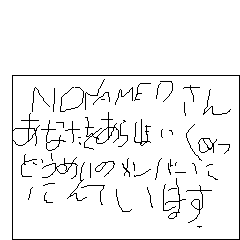 NONAMEDさん
あなたをあらしまい くめっ
どうめいのメンバーに
にんていします